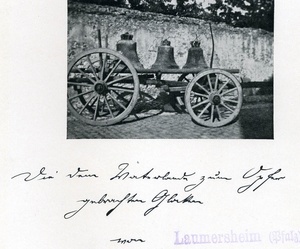 Die dem Vaterlande zum Opfer
gebrachten Glocken
von
Laumersheim (Pfalz)